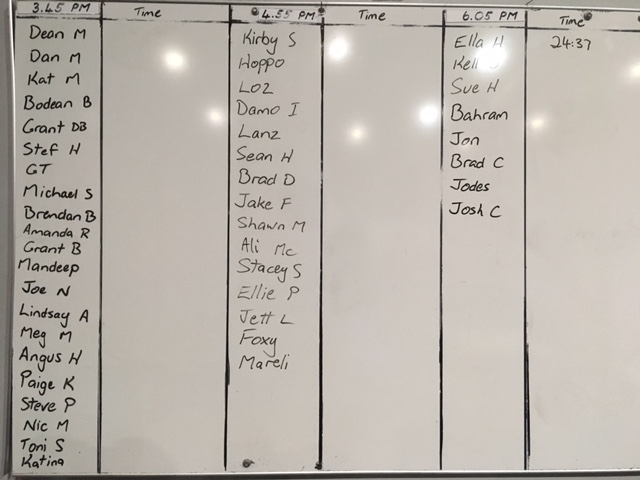 3.45 PM
Time
Dean M
Dan M
Kat M
Bodean B
Grant DB
Stef H
GT
Michael S
Brendan B
Amanda R
Grant B
Mandeep
Joe N
Lindsay A
Meg M
Angus H
Paige K
Steve P
Nic M
Toni S
Katina
4.55 PM
Time
Kirby S
Hoppo
Loz
Damo I
Lanz
Sean H
Brad D
Jake F
Shawn M
Ali Mc
Stacey S
Ellie P
Jett L
Foxy
Mareli
6.05 PM
Time
Ella H 24:37
Sue H
Bahram
Jon
Brad C
Jodes
Josh C